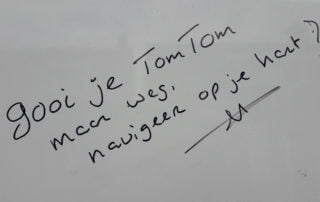 gooi je TomTom
maar weg,
navigeer op je hart?
M